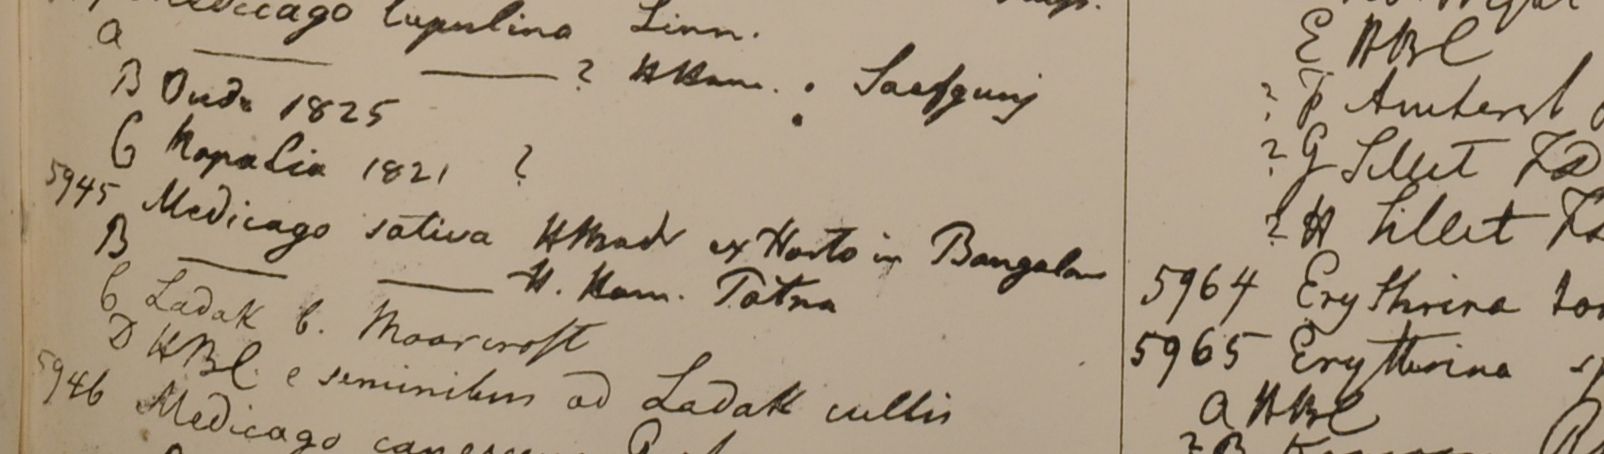 Medicago lupulina Linn.
a ——— ——— ? HHam. Saefgunj
B Oude 1825
C Kopalia 1821 ?
5945 Medicago sativa HMadr ex Horto in Bangalore
B ——— ——— H. Ham. Patna
C Ladak C. Moorcroft
D HBC e seminibus ad Ladak cultis
5946 Medicago
E HBC
? F Amherst
? G Sillet
? H Sillet
5964 Erythrina
5965 Erythrina
a HBC
? B